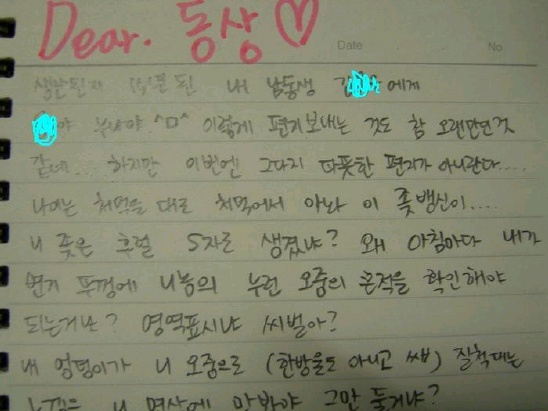 Dear. 동상♡
Date No.
생산된지 된 내 남동생 에게
야 누나야 ^ㅁ^ 이렇게 편지보내는 것도 참 오랜만인것
같네... 하지만 이번엔 그다지 따뜻한 편지가 아니란다....
나이는 처먹을 대로 처먹어서 아놔 이 좆뱅신이....
니 좆은 후럴 S자로 생겼냐? 왜 아침마다 내가
변기 뚜껑에 니놈의 누런 오줌의 흔적을 확인해야
되는거냐? 영역표시냐 씨벌아?
내 엉덩이가 니 오줌으로 (한방울도 아니고 쌰) 질척대는
느낌을 니 면상에 맛봐야 그만 둘거냐?